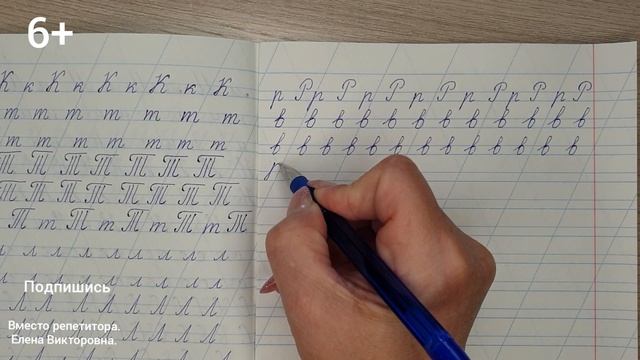 6+
К к К к К к К к К
т т т т т т т
т т т т т т т
Т Т Т Т Т Т Т
Т Т Т Т Т Т Т
Т т Т т Т т Т т Т
л л л л л л л л л
л л л л л л л л
Л Л Л Л Л Л Л Л
р Р р Р р Р р Р р Р р Р р Р
в в в в в в в в в в в в в
в в в в в в в в в в в в в
Подпишись
Вместо репетитора.
Елена Викторовна.